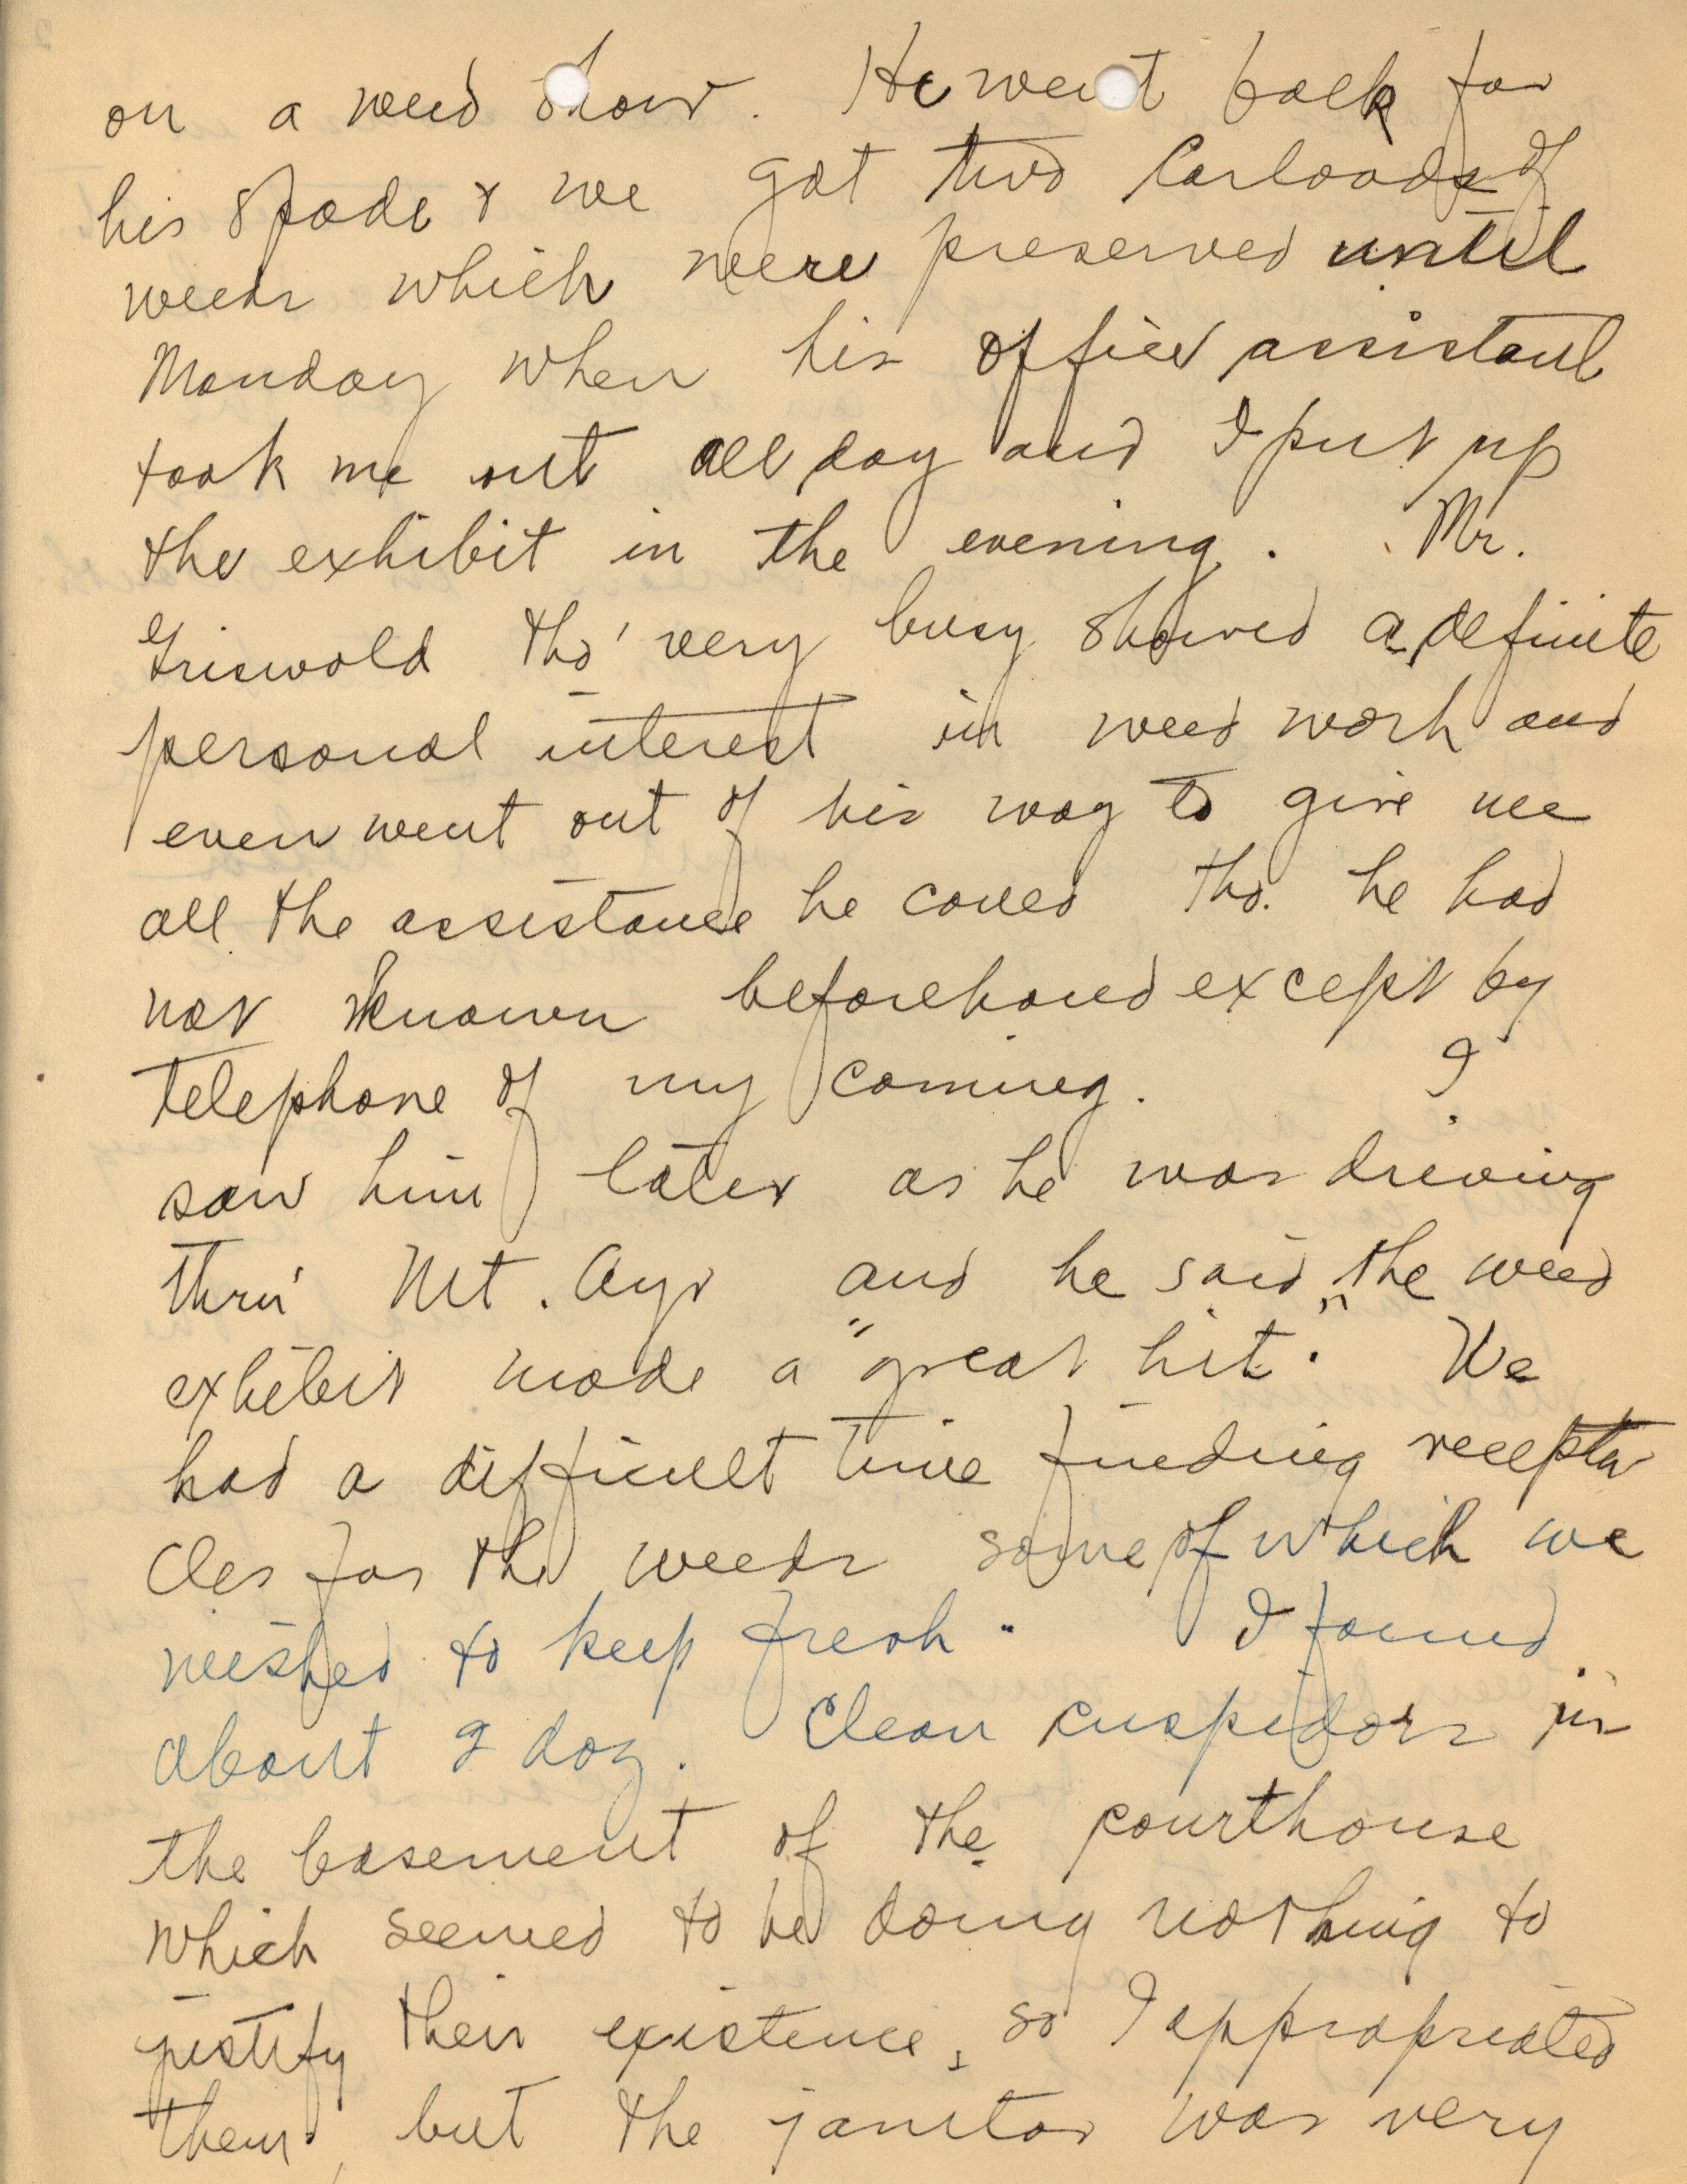 on a weed show. He went back for
his spade & we got two carloads of
weeds which were preserved until
Monday when his office assistant
took me out all day and I put up
the exhibit in the evening. Mr.
Griswold tho' very busy showed a definite
personal interest in weed work and
even went out of his way to give me
all the assistance he could tho. he had
not known beforehand except by
telephone of my coming. I
saw him later as he was driving
thru' Mt. Ayr and he said "the weed
exhibit made a "great hit". We
had a difficult time finding recepta
cles for the weeds some of which we
wished to keep fresh. I found
about 2 doz. clean cuspidors in
the basement of the courthouse
which seemed to be doing nothing to
justify their existence, so I appropriated
them, but the janitor was very